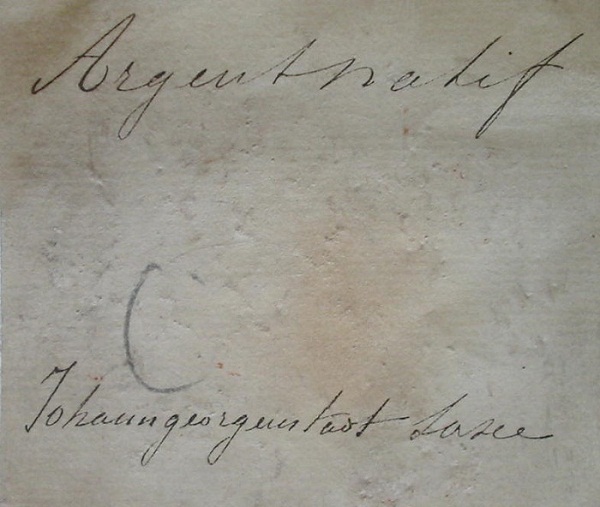 Argent natif
C
Johanngeorgenstadt Saxe